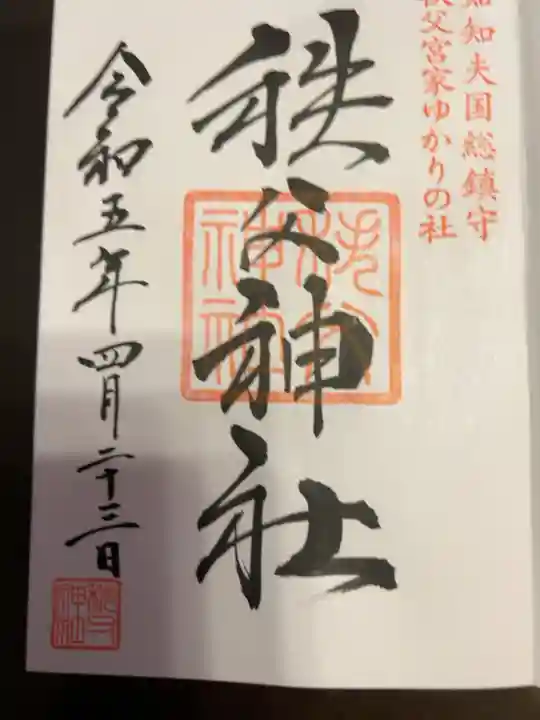 知知夫国総鎮守
秩父宮家ゆかりの社
秩父神社
秩父神社
令和五年四月二十三日
秩父神社